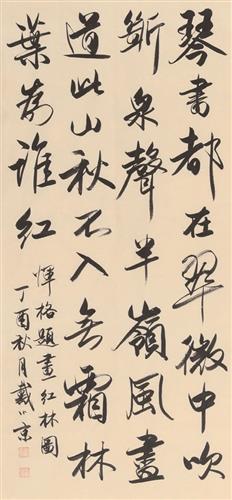 琴書都在翠微中吹
斷泉聲半嶺風盡
道此山秋不入無霜林
葉為誰紅
惲格題畫紅林圖
丁酉秋月戴小京